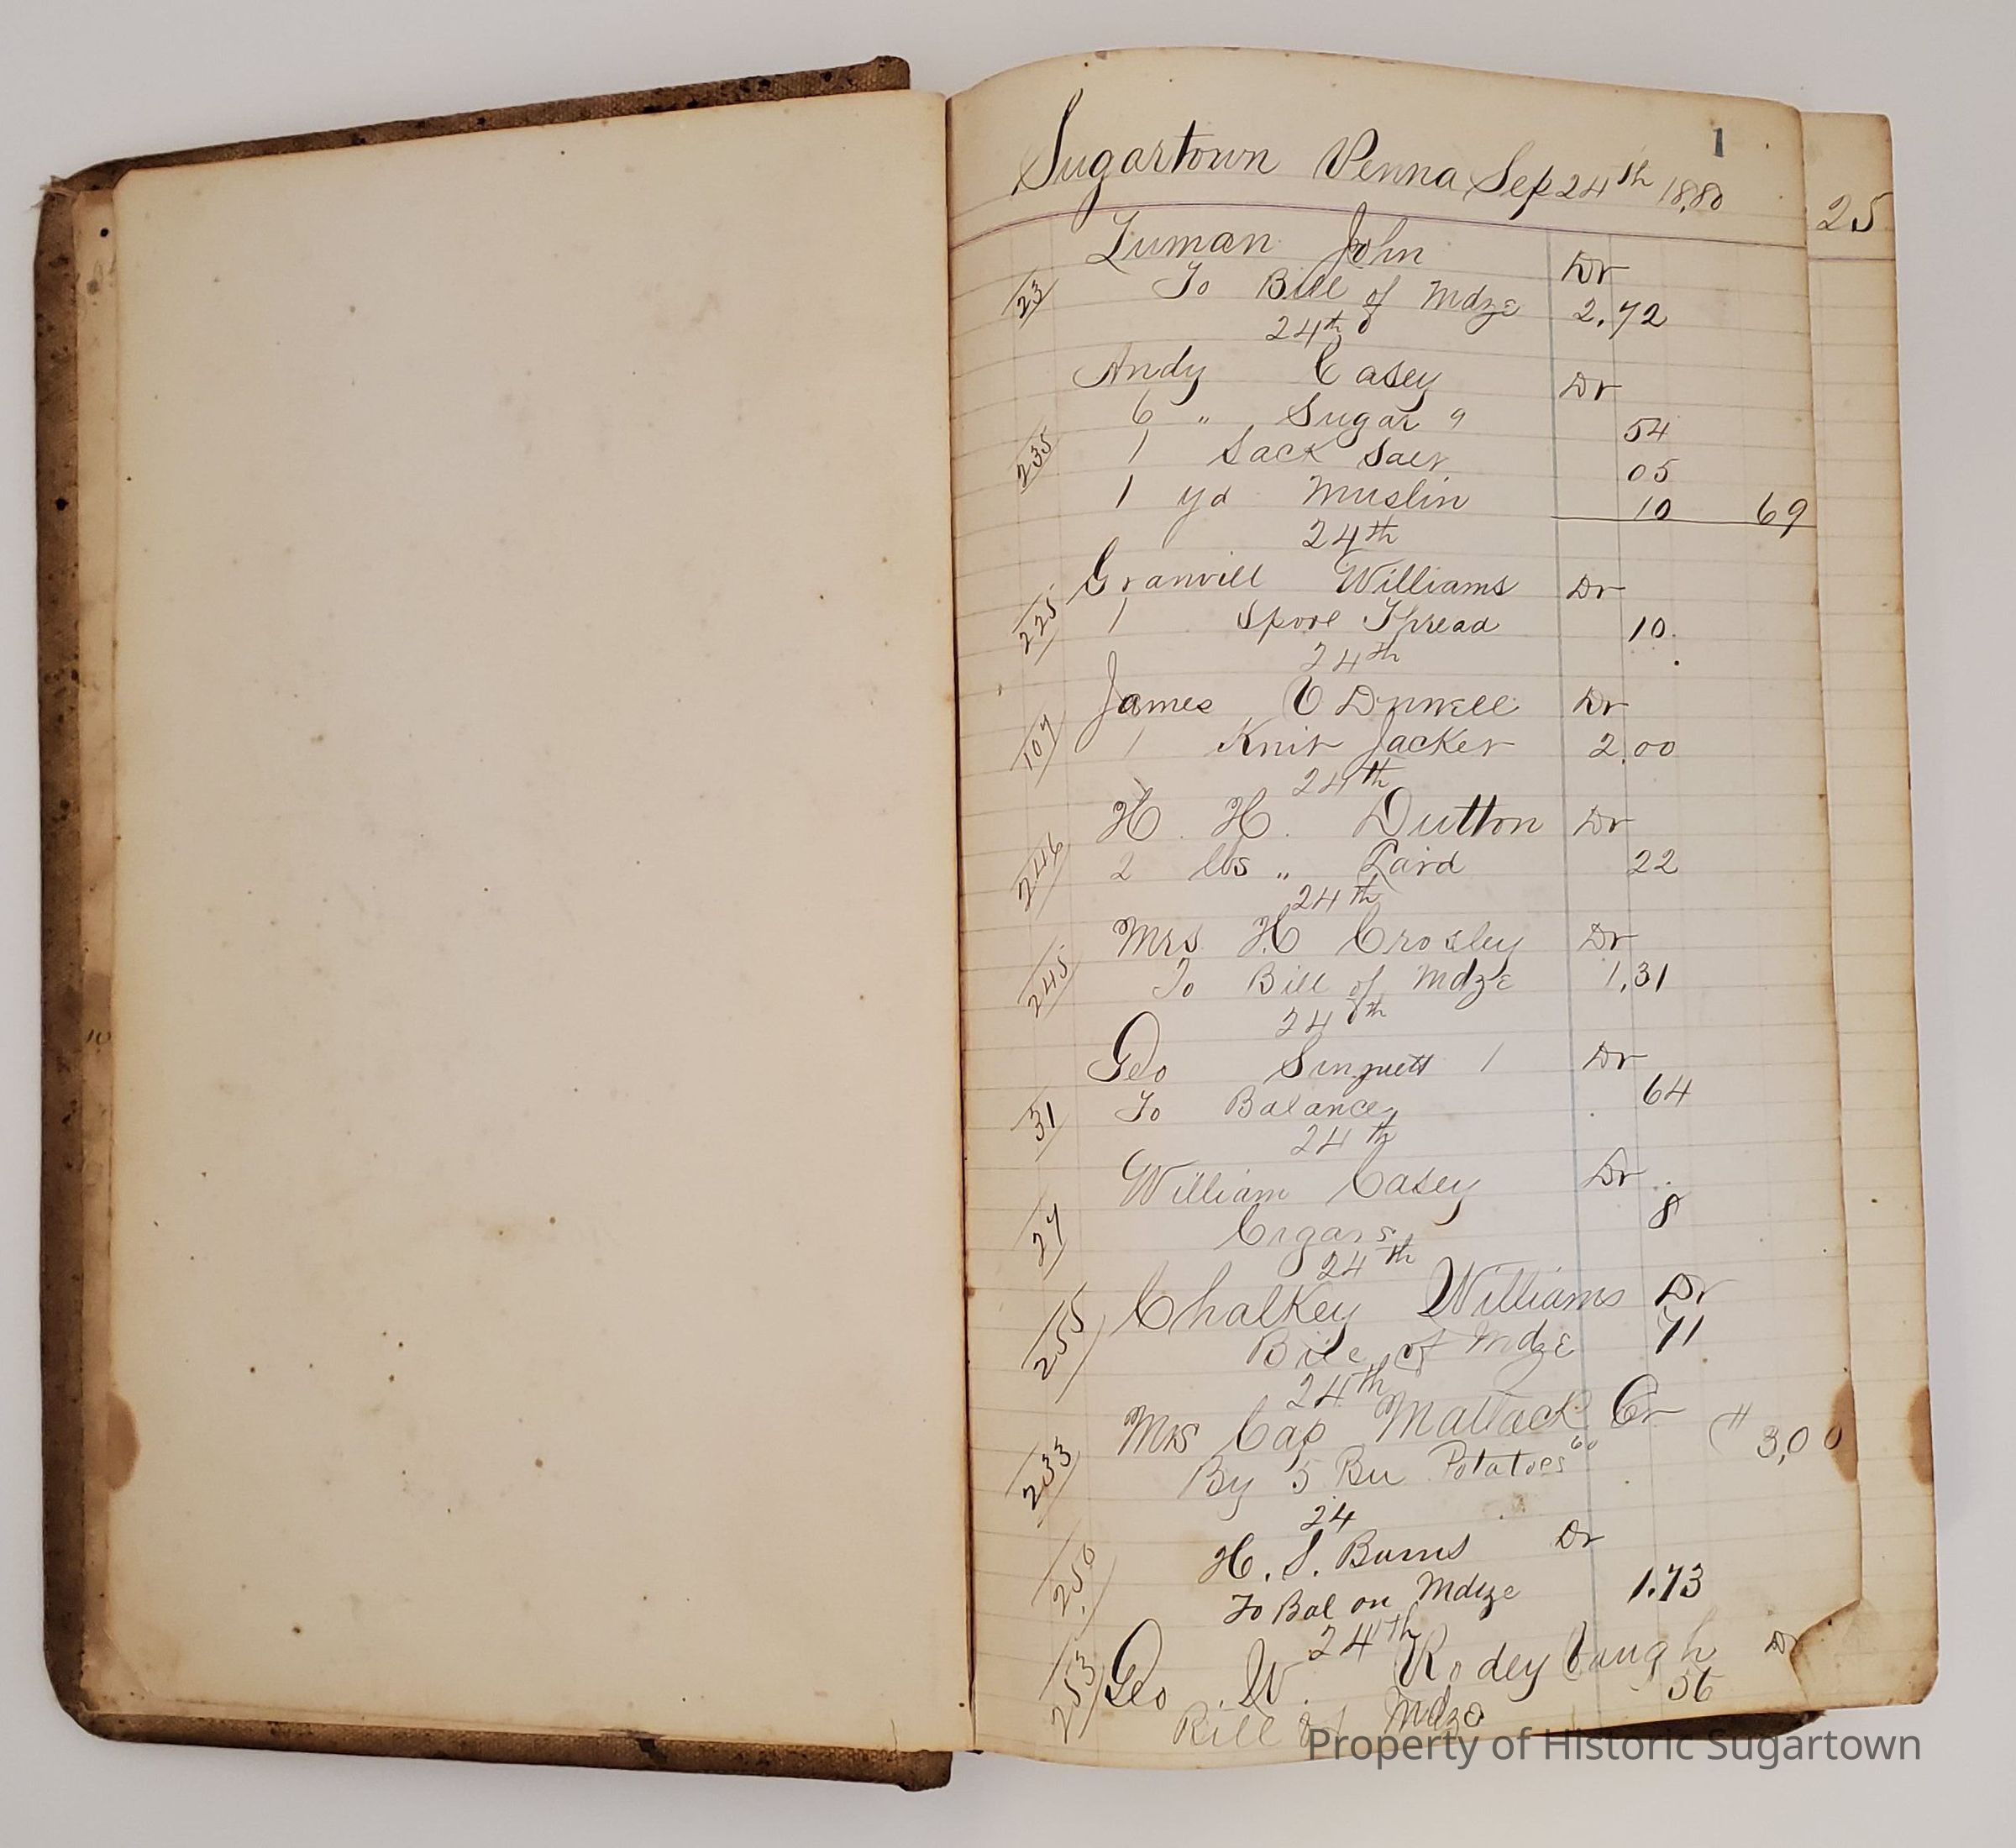 1
Sugartown Penna Sep 24th 18,80
25
Luman John Dr
23 To Bill of Mdze 2.72
24th
Andy Casey Dr
6 " Sugar 9 54
235 1 Sack Salt 05
1 yd Muslin 10 69
24th
Granvill Williams Dr
225 1 Spool Thread 10.
24th
James O Dnnell Dr
107 1 Knit Jacket 2.00
24th
H. H. Dutton Dr
246 2 lbs " Lard 22
24th
Mrs H Crosley Dr
245 To Bill of Mdze 1,31
24th
Geo 1 Dr
31 To Balance 64
24th
William Casey Dr
27 Cigars 8
24th
Chalkey Williams Dr
255 Bill of Mdze 71
24th
Mrs Cap Matlack Cr
233 By 5 Bu Potatoes 60 3,00
24
H. S. Burns Dr
250 To Bal on Mdze 1.73
24th
253 Geo W. Rodeybaugh Dr
Bill of Mdze 56
10
Property of Historic Sugartown